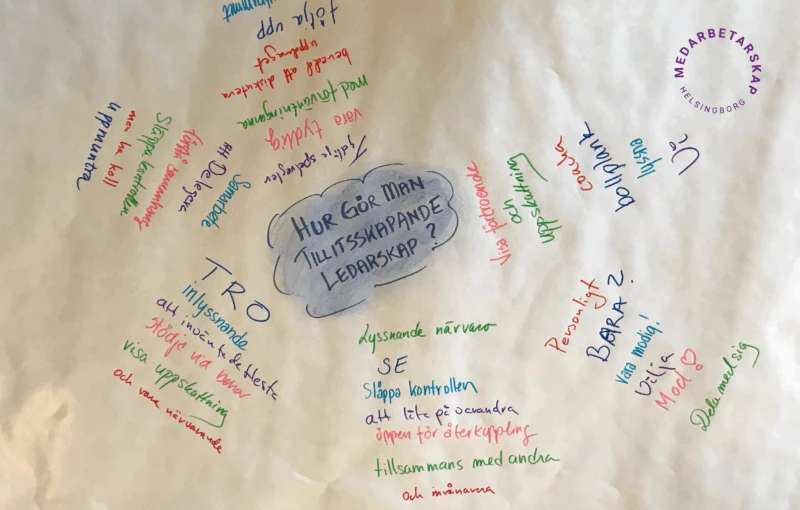 HUR GÖR MAN
TILLITSSKAPANDE
LEDARSKAP?
MEDARBETARSKAP
HELSINGBORG
följa upp
uppdraget
beredd att diskutera
med förväntningarna
vara tydlig
Tydliga spelregler
uppmuntra
men ha koll
Släppa kontrollen
Att Delegera
Samarbete
TRO
inlyssnande
att inte
stödje
visa uppskattning
och vara närvarande
Lyssnande närvaro
SE
Släppa kontrollen
att lita på varandra
öppen för återkoppling
tillsammans med andra
och invånarna
Visa förtroende
och
uppskattning
coacha
bollplank
lyssna
Personligt
BARA 2
vara modig!
Vilja
Mod
Dela med sig